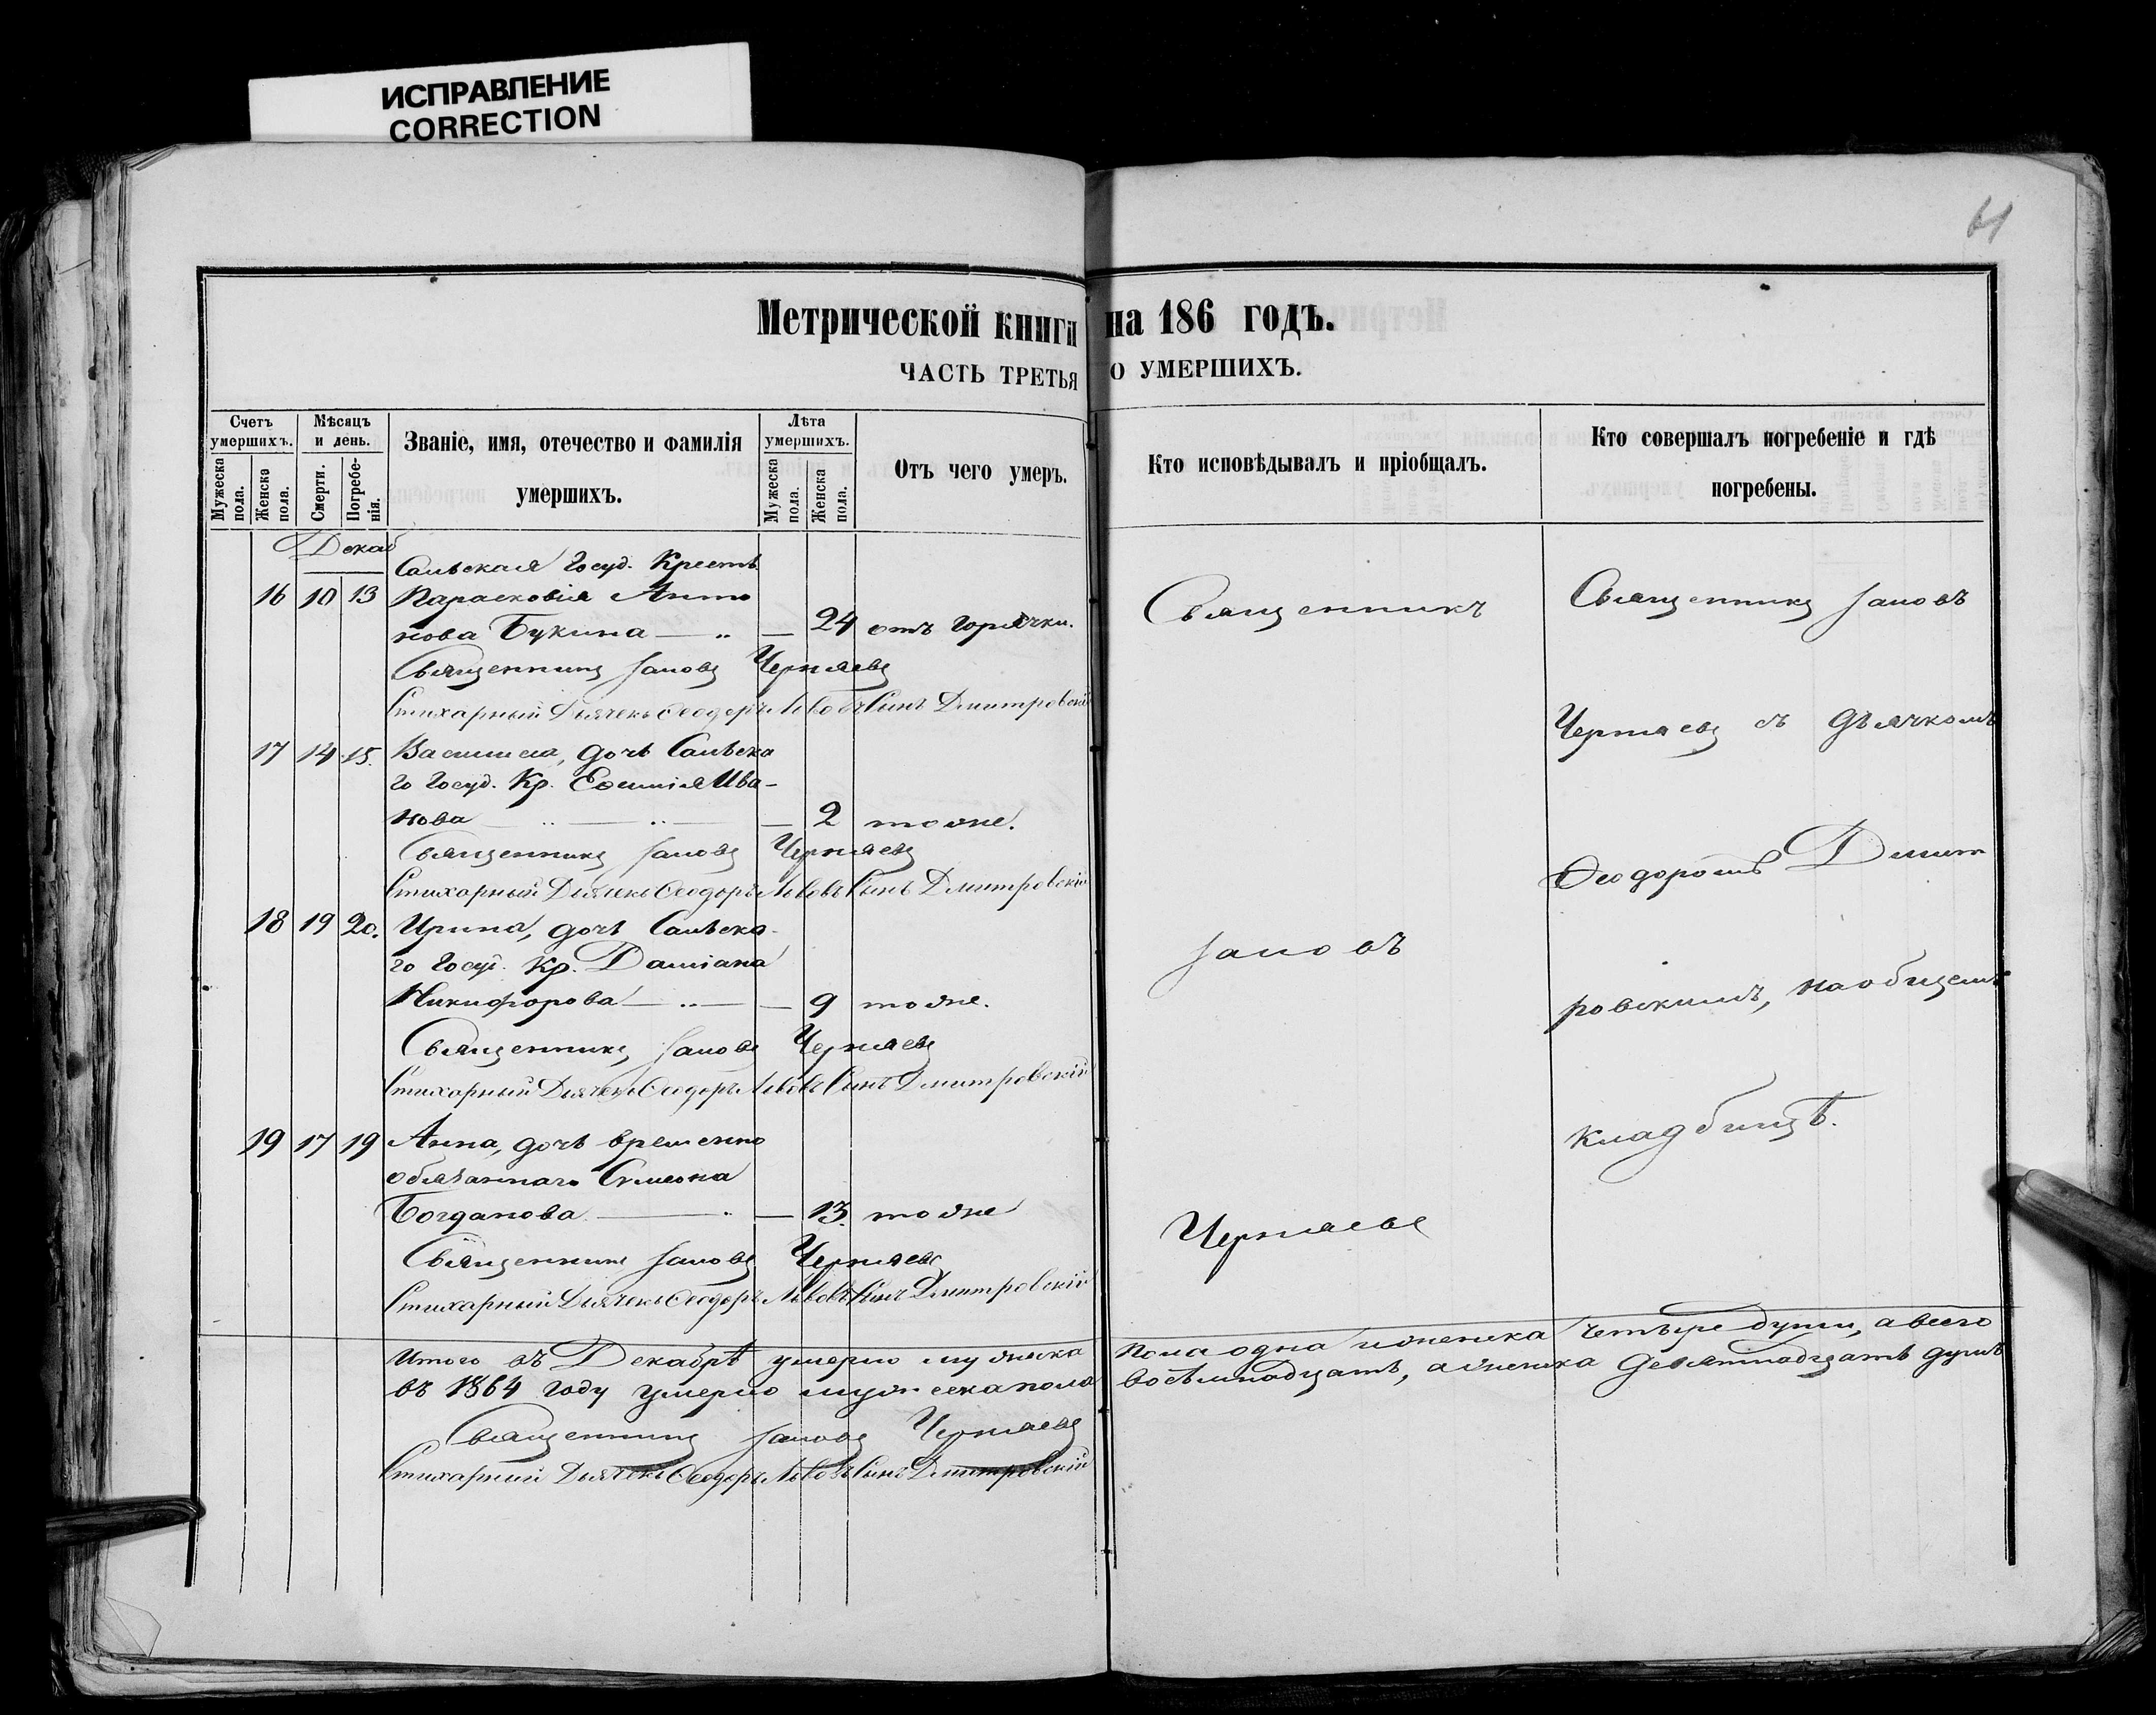 ИСПРАВЛЕНИЕ
CORRECTION
61
Метрической книги на 186 годъ.
ЧАСТЬ ТРЕТЬЯ О УМЕРШИХЪ.
Счетъ умершихъ.
Мужеска пола.
Женска пола.
Мѣсяцъ и день.
Смерти.
Погребе-нія.
Званіе, имя, отечество и фамилія
умершихъ.
Лѣта умершихъ.
Мужеска пола.
Женска пола.
Отъ чего умеръ.
Кто исповѣдывалъ и пріобщалъ.
Кто совершалъ погребеніе и гдѣ
погребены.
Декаб
Сальская Госуд. Крестьян
16 10 13 Парасковія Анто
нова Букина — „ — 24 отъ горячки.
Священникъ Іаковъ Черняевъ
Стихарный Дьячекъ Ѳеодоръ Львовъ Сынъ Дмитровскій
17 14 15. Васиlиса, дочь Сальска
го Госуд. Кр. Ива-
нова — „ — „ — 2 тоже.
Священникъ Іаковъ Черняевъ
Стихарный Дьячекъ Ѳеодоръ Львовъ Сынъ Дмитровскій
18 19 20. Ирина, дочь Сальска-
го Госуд. Кр. Даміана
Никифорова — „ — 9 тоже.
Священникъ Іаковъ Черняевъ
Стихарный Дьячекъ Ѳеодоръ Львовъ Сынъ Дмитровскій
19 17 19 Анна, дочь временно
обязаннаго Симеона
Богданова — „ — 13. тоже
Священникъ Іаковъ Черняевъ
Стихарный Дьячекъ Ѳеодоръ Львовъ Сынъ Дмитровскій
Священникъ
Іаковъ
Черняевъ
Священникъ Іаковъ
Черняевъ съ дьячкомъ
Ѳеодоромъ Дмит
ровскимъ, на общемъ
кладбищѣ.
Итого въ Декабрѣ умерло мужска пола одна и женска четыре души, а всего
въ 1864 году умерло мужеска пола восѣмнадцать, а женска девятнадцать душъ
Священникъ Іаковъ Черняевъ
Стихарный Дьячекъ Ѳеодоръ Львовъ Сынъ Дмитровскій